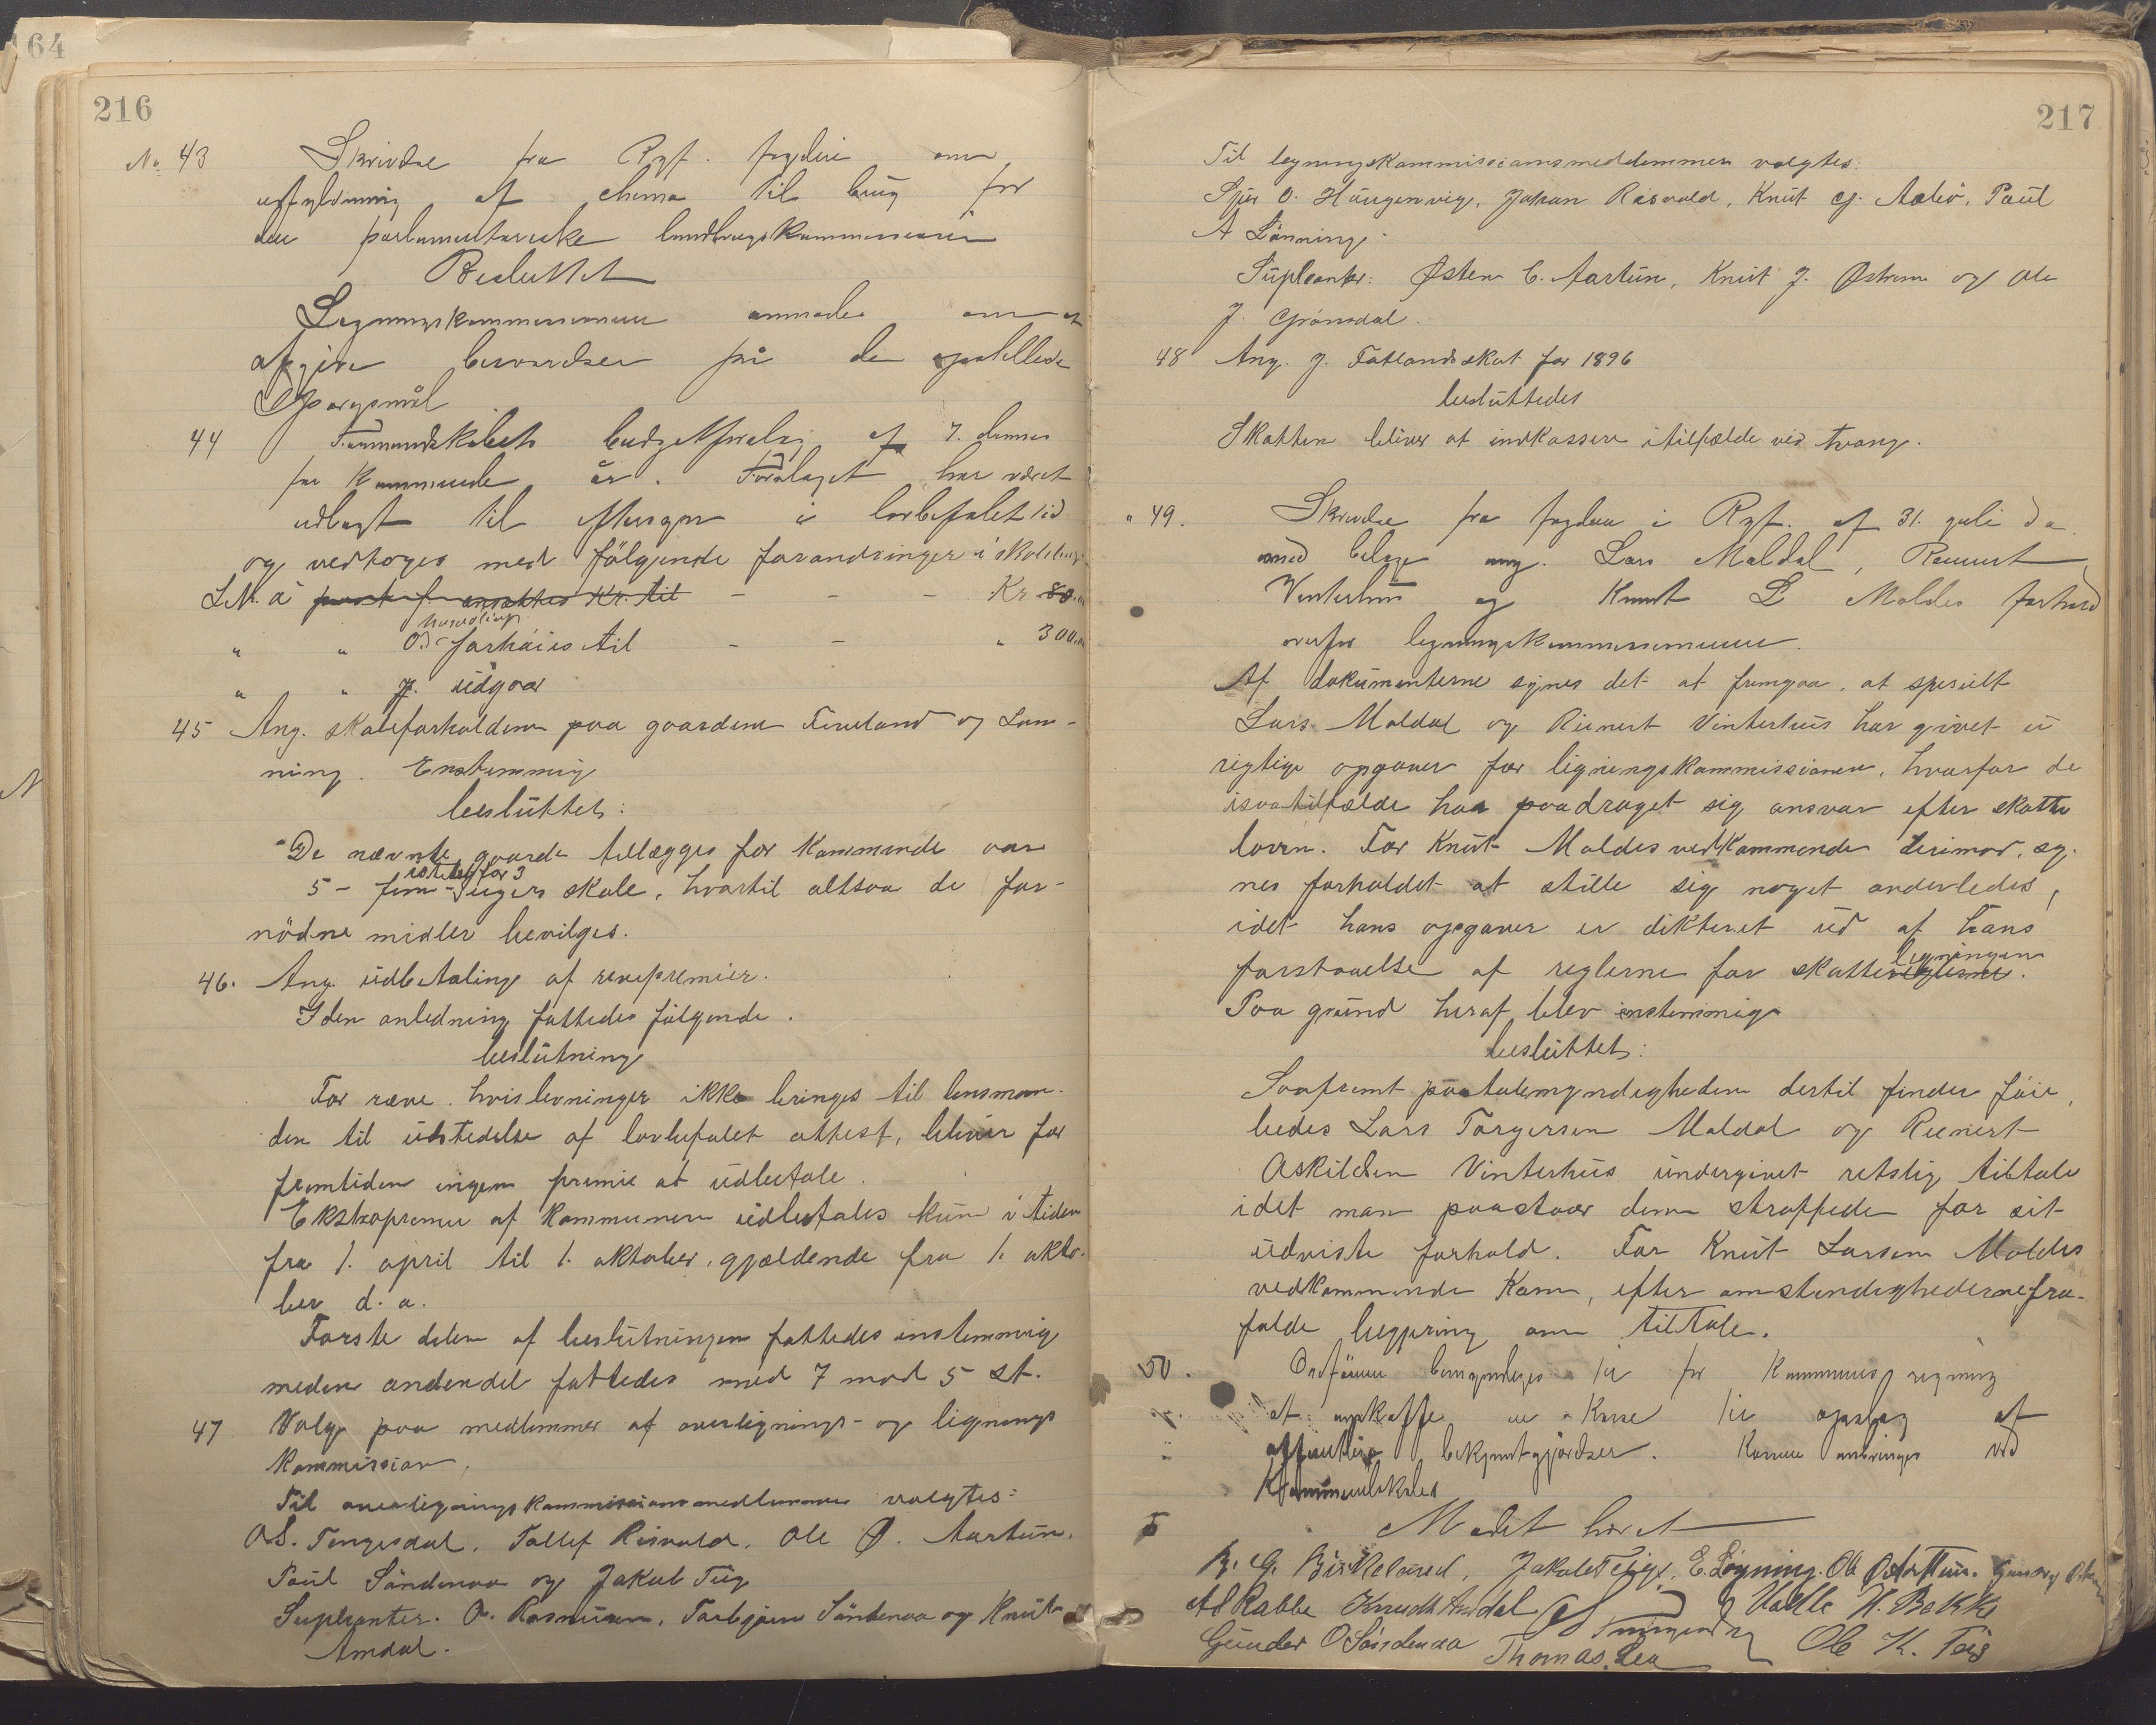 64
216
No 43 Skrivelse fra Ryf. fogderi om
udfyldning af chema til brug for
den parlamentariske landbrugskommission
Besluttet
Ligningskommissionen anmodes om at
afgive besvarelser på de opstillede
Spørgsmål
44 Formandskabets budgetforslag af 7. dennes
for kommende år. Forslaget har været
udlagt til eftersyn i lovbefalet tid
og vedtoges med følgende forandringer i skolebudg.
L.N. a post f. ansattes Kr. til - - - Kr 80.00
" " d forhøies til - - " 300.00
" " g. udgaar
45 Ang. skoleforholdene paa gaardene Fineland og Løn-
ning. Enstemmig
besluttet:
De nævnte gaarde tillægges for kommende aar
istedetfor 3
5 - fem - ugers skole, hvortil altsaa de for-
nødne midler bevilges.
46. Ang. udbetaling af revepremier.
I den anledning fattedes følgende.
beslutning
For ræve, hvis levninger ikke bringes til lensman-
den til udstedelse af lovbefalet attest, bliver for
fremtiden ingen premie at udbetale.
Ekstrapremie af kommunen udbetales kun i tiden
fra 1. april til 1. oktober, gjældende fra 1. okto-
ber d. a.
Første delen af beslutningen fattedes enstemmig
meden anden del fattedes med 7 mod 5 st.
47 Valg paa medlemmer af overlignings- og lignings
kommission.
Til overligningskommissionsmedlemmer valgtes:
O.S. Tengesdal, Tollef Risvold, Ole Ø. Aartun,
Poul Søndenaa og Jakob Teig
Suplianter. O. Rasmussen, Torbjørn Søndenaa og Knut
Amdal.
217
Til ligningskommissionsmedlemmer valgtes:
Sjur O. Haugenvig, Johan Risvold, Knut G. Aabø, Poul
A Lønning.
Suplianter: Østen C. Aartun, Knut J. Østrem og Ole
J. Grønsdal.
48 Ang. J. Fatlands skat for 1896
besluttedes
Skatten bliver at indkassere i tilfælde ved tvang.
" 49. Skrivelse fra fogden i Ryf. af 31. juli d a
med bilage ang. Lars Maldal, Reinert
Vinterhus og Knut L Moldes forhold
overfor ligningskommissionen.
Af dokumenterne synes det at fremgaa, at spesielt
Lars Maldal og Reinert Vinterhus har givet u
rigtige opgaver for ligningskommissionen, hvorfor de
isaatilfælde har paadraget sig ansvar efter skatte
loven. For Knut Moldes vedkommende derimod, sy-
nes forholdet at stille sig noget anderledes,
idet hans opgaver er dikteret ud af hans
ligningen
forstaaelse af reglerne for skattereglerne.
Paa grund heraf blev enstemmig
besluttet:
Saafremt paatalemyndigheden dertil finder føie,
bedes Lars Torgersen Maldal og Reinert
Askildsen Vinterhus undergivet retslig tiltale
idet man paastaar dem straffede for sit
udviste forhold. For Knut Larsen Moldes
vedkommende kan, efter omstendighederne fra-
falde begjæring om tiltale.
50. Ordføreren bemyndiges til for kommunens regning
at anskaffe en kasse til opslag af
offentlige bekjentgjørelser. Kassen anbringes ved
Kommunelokalet
Mødet hævet
B. G. Birkeland, Jakob Teig, E. Løgning. Ole Ø Aartun.
Ad Rabbe Knudt Amdal Valle H. Bakke
Gunder O Søndenaa Thomas Lea Ole K. Teig